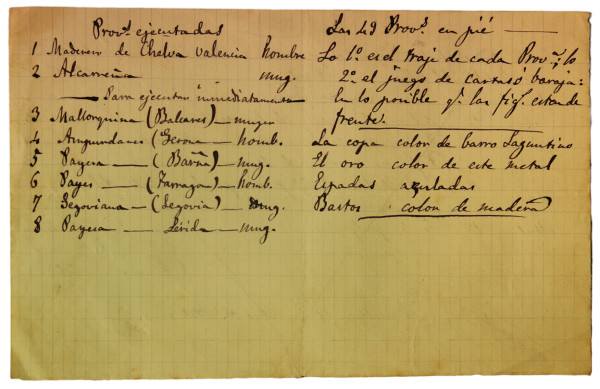 Provs ejecutadas
1 Maderero de Chelva Valencia hombre
2 Alcarreña mug.
Para ejecutar inmediatamente
3 Mallorquina (Baleares) — muger
4 Ampurdanes (Gerona — homb.
5 Payesa — (Barña) — mug.
6 Payes — (Tarragona) — homb.
7 Segoviana — (Segovia) — mug.
8 Payesa — Lérida — mug.
Las 49 Provs en pié —
Lo 1º es el traje de cada Prova; lo
2º el juego de cartas ó baraja:
En lo posible q. las fig. estén de
frente.
La copa color de barro Saguntino
El oro color de este metal
Espadas azuladas
Bastos color de madera